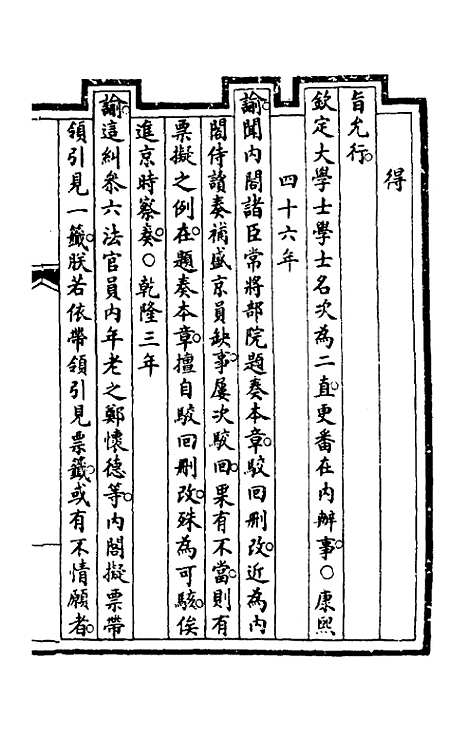 得
旨允行。
欽定大學士學士名次為二直。更番在內辦事。○康熙
四十六年
諭。聞內閣諸臣常將部院題奏本章。駮回刪改。近為內
閣侍讀奏補盛京員缺事。屢次駮回。果有不當。則有
票擬之例。在題奏本章。擅自駮回刪改。殊為可駭。俟
進京時察奏。○乾隆三年
諭。這糾叅六法官員內年老之鄭懷德等。內閣擬票帶
領引見一籤。朕若依帶領引見票籤。或有不情願者。